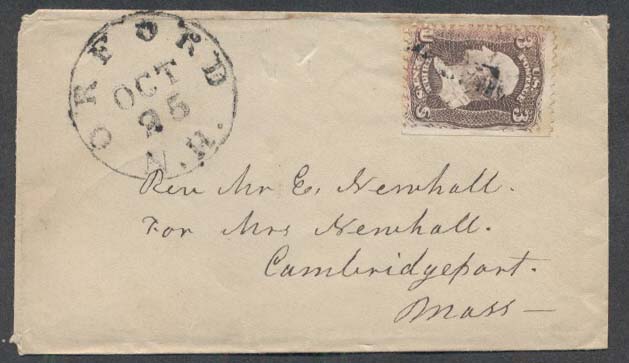 ORFORD
OCT
25
N.H.
U 3
U.S.
POSTAGE
3 S
Rev Mr E. Newhall.
For Mrs Newhall.
Cambridgeport.
Mass —